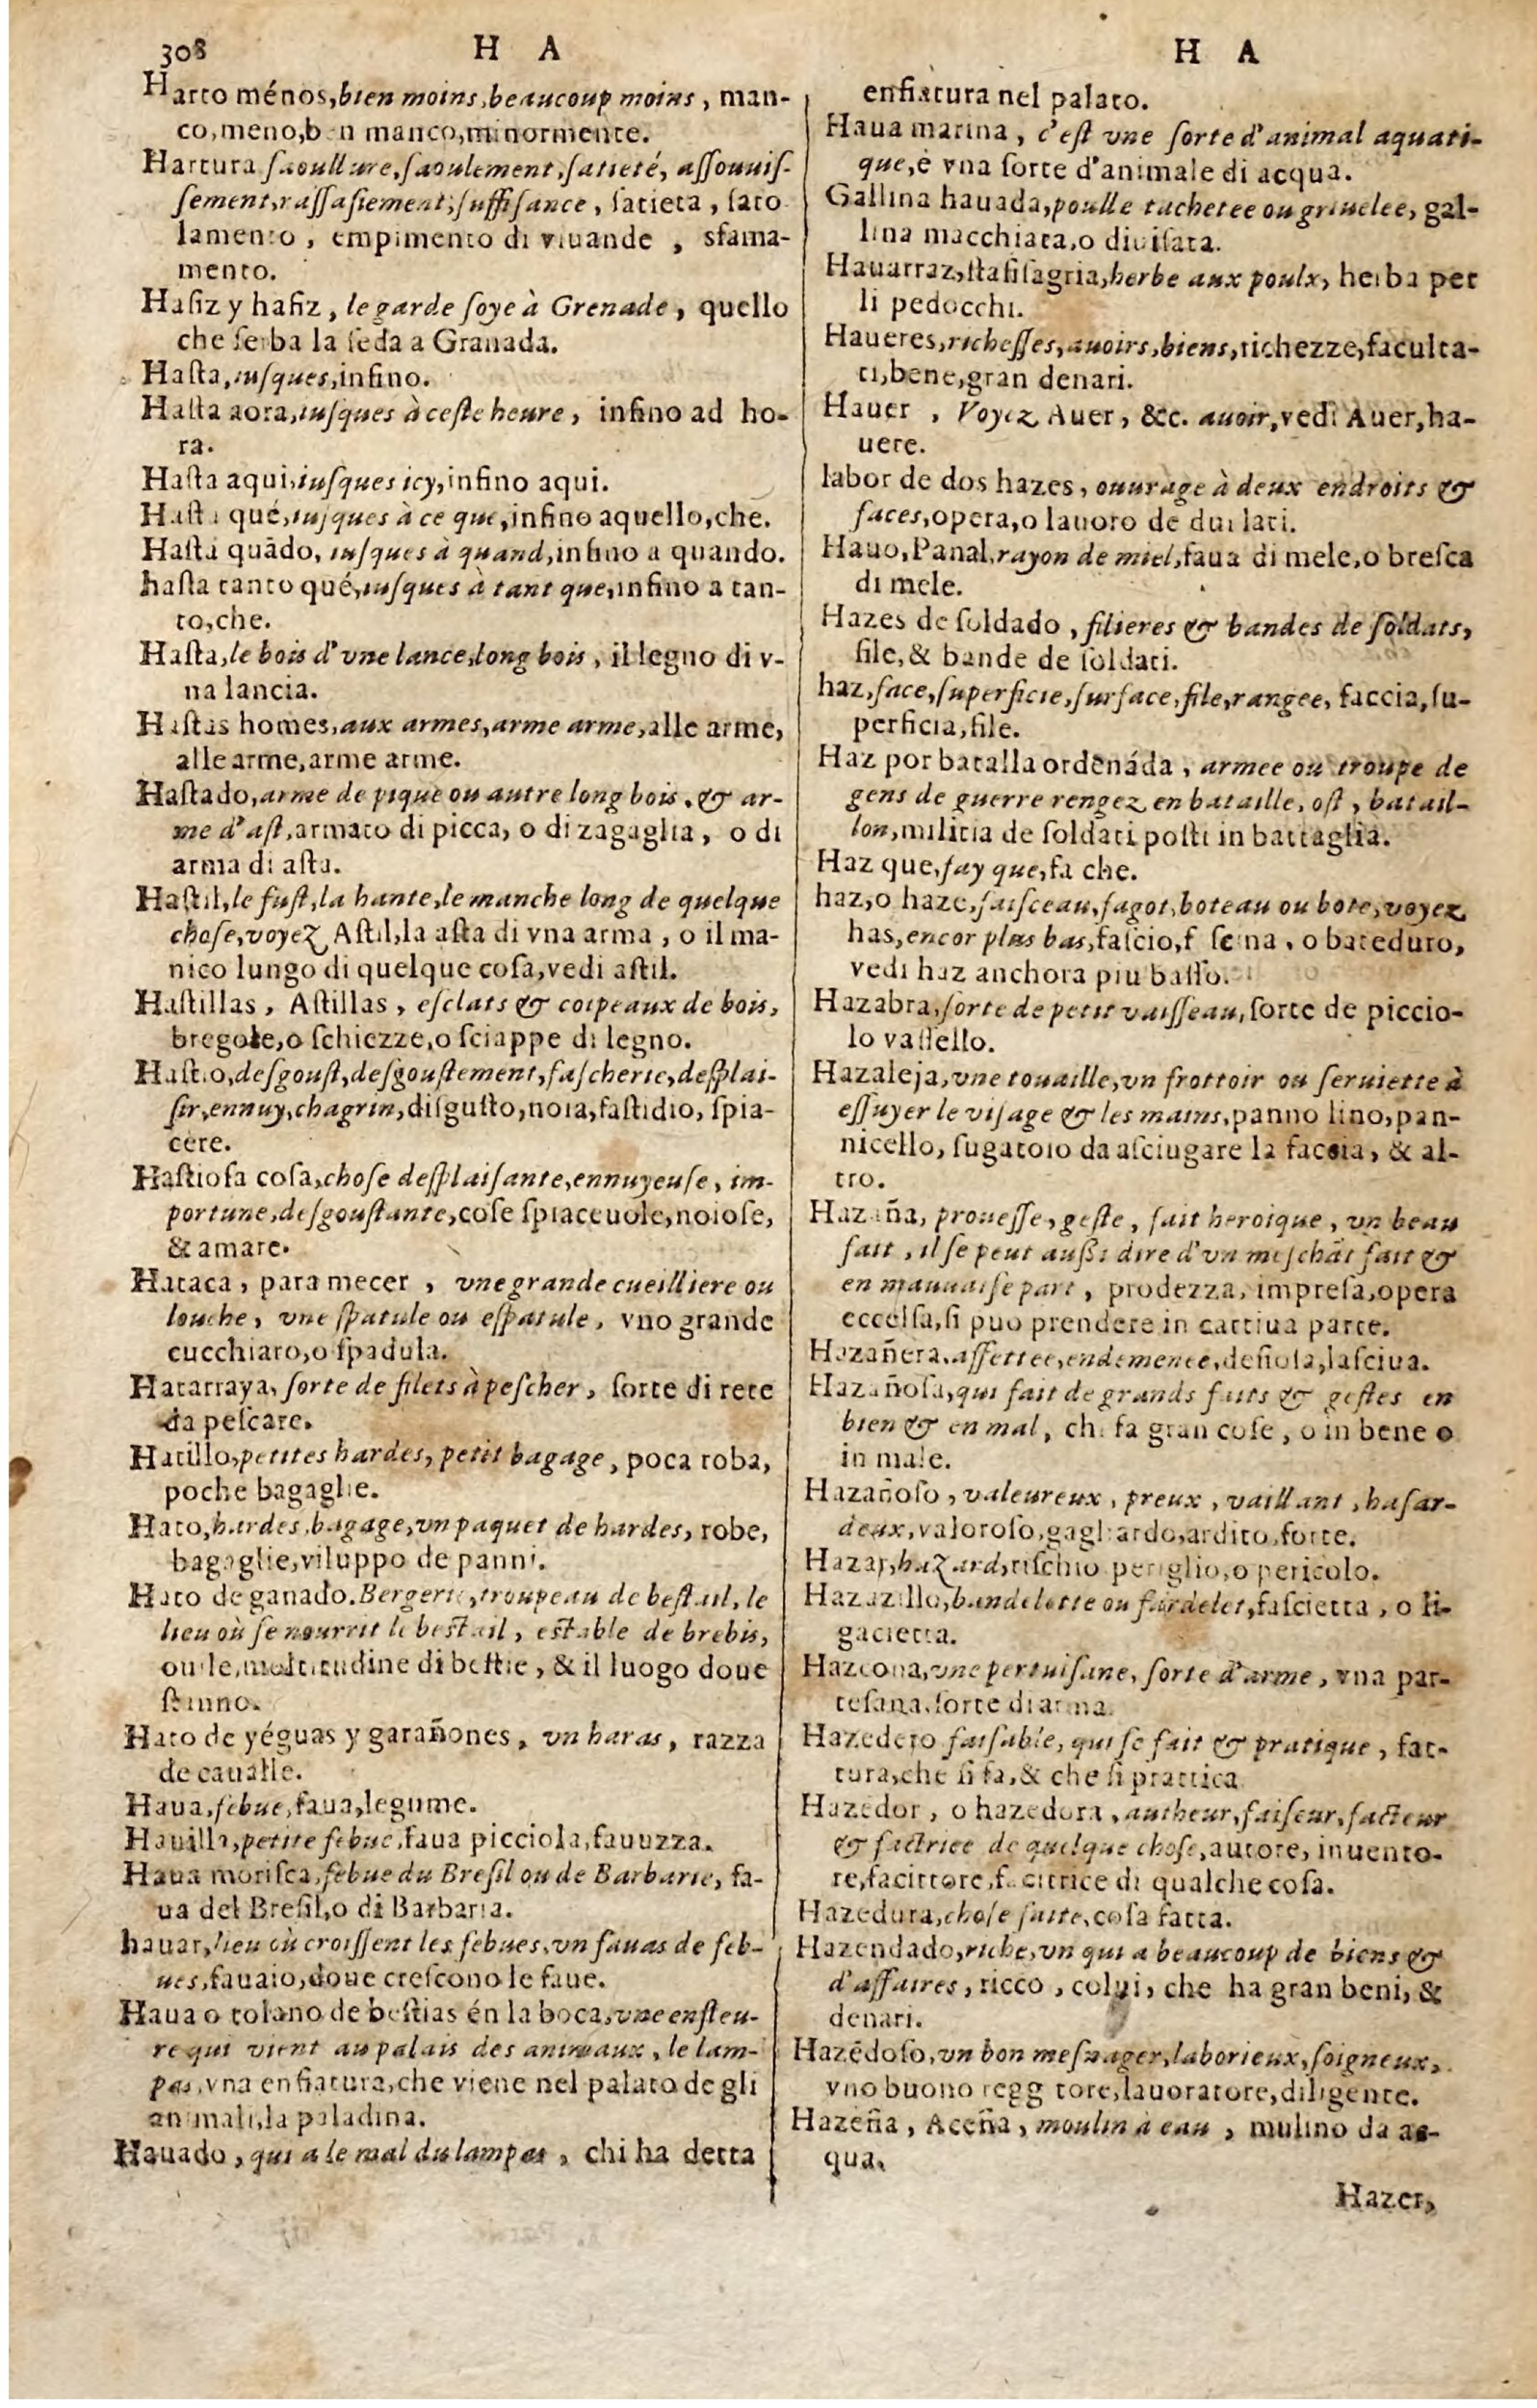 308 H A
Harto ménos, bien moins, beaucoup moins, man-
co, meno, ben manco, minormente.
Hartura saoullure, saoulement, satieté, assouuis-
sement, rassasiement, suffisance, satieta, sato
lamento, empimento di viuande, sfama-
mento.
Hafiz y hafiz, le garde soye à Grenade, quello
che serba la seda a Granada.
Hasta, iusques, infino.
Hasta aora, iusques à ceste heure, infino ad ho-
ra.
Hasta aqui, iusques icy, infino aqui.
Hasta qué, iusques à ce que, infino aquello, che.
Hasta quãdo, iusques à quand, infino a quando.
hasta tanto qué, iusques à tant que, infino a tan-
to, che.
Hasta, le bois d'vne lance, long bois, il legno di v-
na lancia.
Hastas homes, aux armes, arme arme, alle arme,
alle arme, arme arme.
Hastado, arme de pique ou autre long bois, & ar-
me d'ast, armato di picca, o di zagaglia, o di
arma di asta.
Hastil, le fust, la hante, le manche long de quelque
chose, voyez Astil, la asta di vna arma, o il ma-
nico lungo di quelque cosa, vedi astil.
Hastillas, Astillas, esclats & coipeaux de bois,
bregole, o schiezze, o sciappe di legno.
Hastio, desgoust, desgoustement, fascherie, desplai-
sir, ennuy, chagrin, disgusto, noia, fastidio, spia-
cere.
Hastiosa cosa, chose desplaisante, ennuyeuse, im-
portune, desgoustante, cose spiaceuole, noiose,
& amare.
Hataca, para mecer, vne grande cueilliere ou
louche, vne spatule ou espatule, vno grande
cucchiaro, o spadula.
Hatarraya, sorte de filets à pescher, sorte di rete
da pescare.
Hatillo, petites hardes, petit bagage, poca roba,
poche bagaglie.
Hato, hardes, bagage, vn paquet de hardes, robe,
bagaglie, viluppo de panni.
Hato de ganado. Bergerie, troupeau de bestail, le
lieu où se nourrit le bestail, estable de brebis,
ouile, moltitudine di bestie, & il luogo doue
stanno.
Hato de yéguas y garañones, vn haras, razza
de caualle.
Haua, febue, faua, legume.
Hauilla, petite febue, faua picciola, fauuzza.
Haua morisca, febue du Bresil ou de Barbarie, fa-
ua del Bresil, o di Barbaria.
hauar, lieu où croissent les febues, vn fauas de feb-
ues, fauaio, doue crescono le faue.
Haua o tolano de bestias én la boca, vne enfleu-
re qui vient au palais des animaux, le lam-
pas, vna enfiatura, che viene nel palato de gli
animali, la paladina.
Hauado, qui a le mal du lampas, chi ha detta
H A
enfiatura nel palato.
Haua marina, c'est vne sorte d'animal aquati-
que, è vna sorte d'animale di acqua.
Gallina hauada, poulle tachetee ou griuelee, gal-
lina macchiata, o diuisata.
Hauarraz, stafisagria, herbe aux poulx, herba per
li pedocchi.
Haueres, richesses, auoirs, biens, richezze, faculta-
ti, bene, gran denari.
Hauer, Voyez Auer, &c. auoir, vedi Auer, ha-
uere.
labor de dos hazes, ouurage à deux endroits &
faces, opera, o lauoro de dui lati.
Hauo, Panal, rayon de miel, faua di mele, o bresca
di mele.
Hazes de soldado, filieres & bandes de soldats,
file, & bande de soldati.
haz, face, superficie, surface, file, rangee, faccia, su-
perficia, file.
Haz por batalla ordẽnáda, armee ou troupe de
gens de guerre rengez en bataille, ost, batail-
lon, militia de soldati posti in battaglia.
Haz que, fay que, fa che.
haz, o haze, faisceau, fagot, boteau ou bote, voyez
has, encor plus bas, fascio, f scina, o bateduro,
vedi haz anchora piu basso.
Hazabra, sorte de petit vaisseau, sorte de piccio-
lo vassello.
Hazaleja, vne touaille, vn frottoir ou seruiette à
essuyer le visage & les mains, panno lino, pan-
nicello, sugatoio da asciugare la faccia, & al-
tro.
Hazaña, prouesse, geste, fait heroique, vn beau
fait, il se peut aussi dire d'vn meschãt fait &
en mauuaise part, prodezza, impresa, opera
eccelsa, si puo prendere in cattiua parte.
Hazañera, affettee, endemenee, desiosa, lasciua.
Hazañosa, qui fait de grands faits & gestes en
bien & en mal, chi fa gran cose, o in bene o
in male.
Hazañoso, valeureux, preux, vaillant, hasar-
deux, valoroso, gagliardo, ardito, forte.
Hazar, hazard, rischio periglio, o pericolo.
Hazazillo, bandelette ou fardelet, fascietta, o li-
gacietta.
Hazcona, vne pertuisane, sorte d'arme, vna par-
tesana, sorte di arma.
Hazedero faisable, qui se fait & pratique, fat-
tura, che si fa, & che si prattica
Hazedor, o hazedora, autheur, faiseur, facteur
& factrice de quelque chose, autore, inuento-
re, facittore, facitrice di qualche cosa.
Hazedura, chose faite, cosa fatta.
Hazendado, riche, vn qui a beaucoup de biens &
d'affaires, ricco, colui, che ha gran beni, &
denari.
Hazẽdoso, vn bon mesnager, laborieux, soigneux,
vno buono regg tore, lauoratore, diligente.
Hazeña, Aceña, moulin à eau, mulino da ac-
qua.
Hazer,